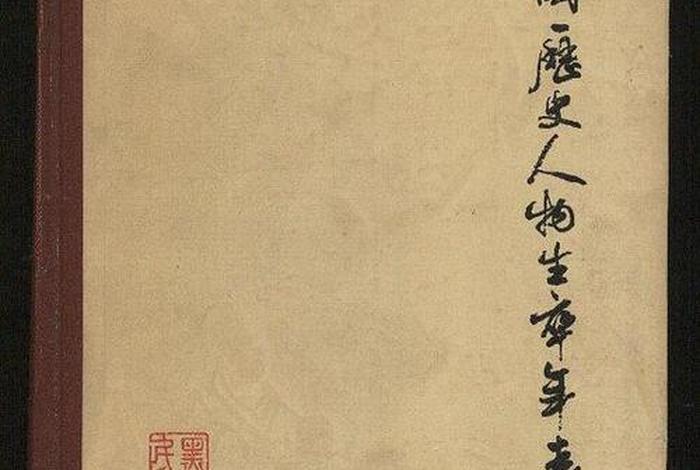 國歷史人物生卒年表
黑